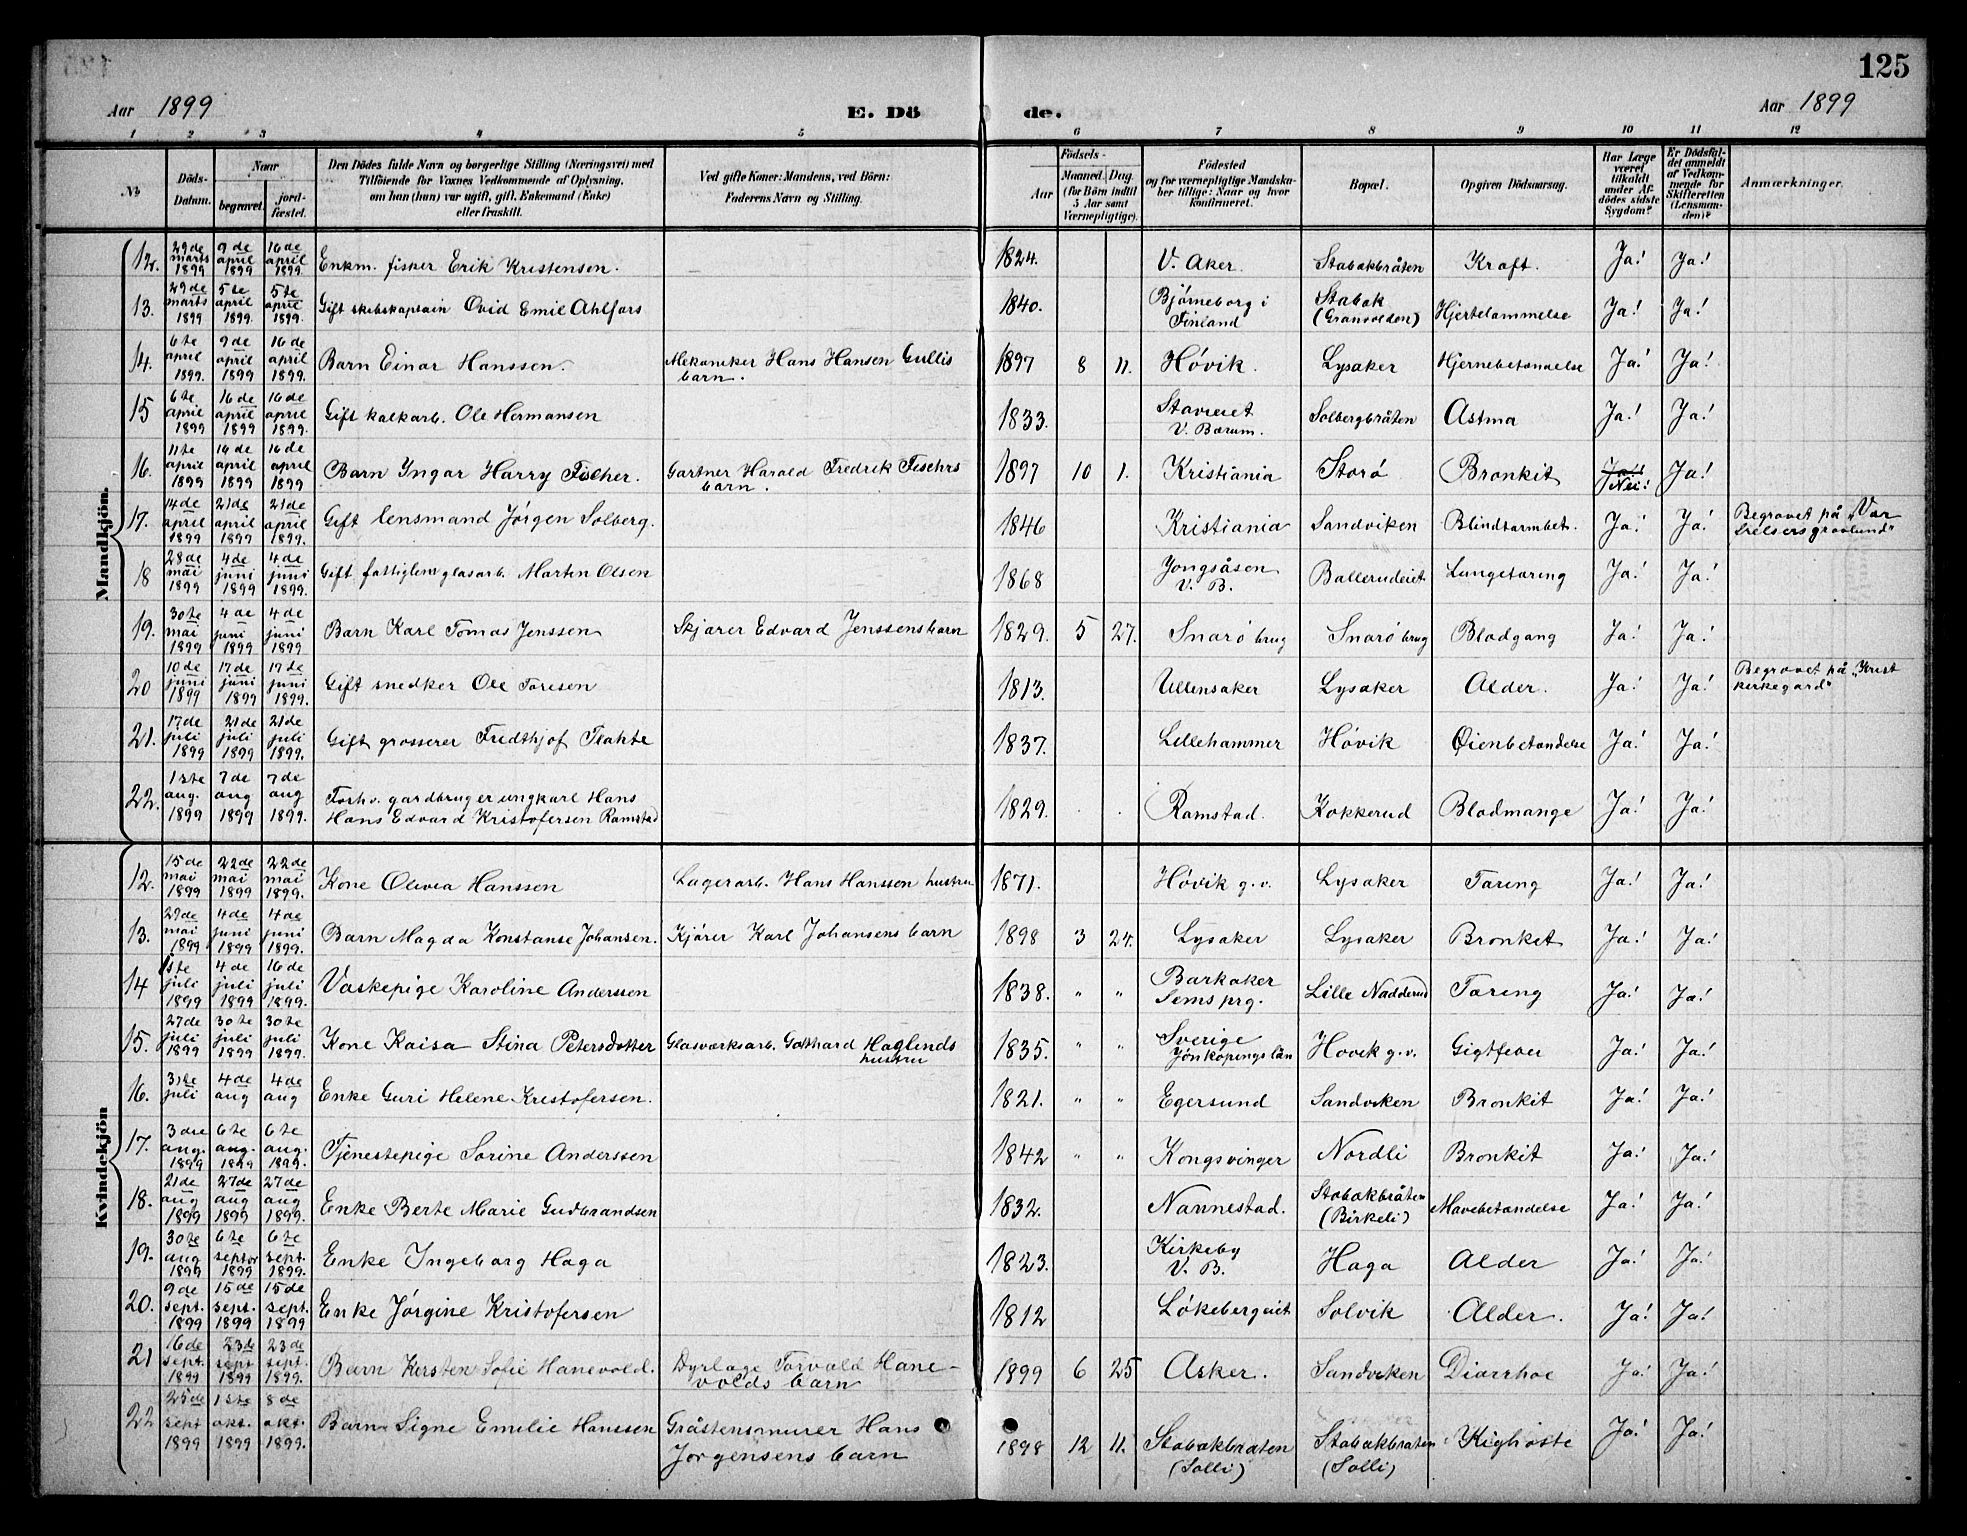 125
Aar 1899 E. Dö de. Aar 1899
1 2 3 4 5 6 7 8 9 10 11 12
№ Döds-Datum. Naar begravet. jordfæstet. Den Dödes fulde Navn og borgerlige Stilling (Næringsvei) med Tilföiende for Voxnes Vedkommende af Oplysning, om han (hun) var ugift, gift, Enkemand (Enke) eller fraskilt. Ved gifte Koner: Mandens, ved Börn: Faderens Navn og Stilling. Födsels- Aar Maaned. Dag. (for Börn indtil 5 Aar samt Værnepligtige). Födested og for værnepligtige Mandskaber tillige: Naar og hvor konfirmeret. Bopæl. Opgiven Dödsaarsag. Har Læge været tilkaldt under Afdödes sidste Sygdom? Er Dödsfaldet anmeldt af Vedkommende for Skifteretten (Lensmanden)? Anmærkninger.
Mandkjön.
12. 29de marts 1899 9de april 1899 16de april 1899. Enkm. fisker Erik Kristensen. 1824. V. Aker. Stabækbråten Kræft. Ja! Ja!
13. 29de marts 1899 5te april 1899. 5te april 1899. Gift skibskaptain Ovid Emil Ahlfors 1840. Bjørneborg i Finland Stabæk (Granvolden) Hjertelammelse Ja! Ja!
14. 6te april 1899. 9de april 1899 16de april 1899. Barn Einar Hanssen. Mekaniker Hans Hansen Gullis barn. 1897 8 11. Høvik. Lysaker Hjernebetændelse Ja! Ja!
15 6te april 1899 16de april 1899 16de april 1899. Gift kalkarb. Ole Hermansen 1833. V. Bærum. Solbergbråten Astma Ja! Ja!
16. 11te april 1899 16de april 1899 16de april 1899 Barn Yngar Harry Fischer. Gartner Harald Fredrik Fischrs barn. 1897 10 1. Kristiania Storø Bronkit Ja! Nei! Ja!
17. 14de april 1899 21de april 1899 21de april 1899 Gift lensmand Jørgen Solberg. 1846 Kristiania Sandviken Blindtarmbet. Ja! Ja! Begravet på „Vor Frelsers gravlund"
18 28de mai 1899 4de juni 1899 4de juni 1899. Gift fattiglem glasarb. Martin Olsen 1868 Jongsåsen V. B. Ballerudeiet Lungetæring Ja! Ja!
19. 30te mai 1899 4de juni 1899 4de juni 1899 Barn Karl Tomas Jenssen Skjærer Edvard Jenssens barn 1829. 5 27. Snarø brug Snarø brug Blodgang Ja! Ja!
20 10de juni 1899 17de juni 1899 17de juni 1899. Gift snedker Ole Toresen 1813. Ullensaker Lysaker Alder. Ja! Ja! Begravet på „Krist kirkegard"
21. 17de juli 1899 21de juli 1899 21de juli 1899. Gift grosserer Fredthjof Plahte 1837. Lillehammer Høvik Øienbetændelse Ja! Ja!
22. 1ste aug. 1899 7de aug 1899 7de aug 1899. Forhv. gardbruger ungkarl Hans
Hans Edvard Kristofersen Ramstad 1829. Ramstad. Kokkerud Blodmangel Ja! Ja!
Kvindekjön
12. 15de mai 1899 22de mai 1899 22de mai 1899. Kone Olivia Hanssen Lagerarb. Hans Hanssen hustru 1871. Høvik g.v. Lysaker Tæring Ja! Ja!
13. 29de mai 1899 4de juni 1899 4de juni 1899. Barn Magda Konstanse Johansen. Kjører Karl Johansens barn 1898 3 24. Lysaker Lysaker Bronkit Ja! Ja!
14 1ste juli 1899 4de juli 1899 16de juli 1899. Vaskepige Karoline Anderssen 1838. " " Barkaker Sems prg. Lille Nadderud Tæring Ja! Ja!
15. 27de juli 1899 30te juli 1899 30te juli 1899. Kone Kaisa Stina Petersdotter Glasværksarb. Gotthard Haglunds hustru 1835. " " Sverige Jønkøpings län Høvik g.v. Gigtfeber Ja! Ja!
16. 31te juli 4de aug 4de aug Enke Guri Helene Kristofersen. 1821. " " Egersund Sandviken Bronkit Ja! Ja!
17. 3die aug. 1899 6te aug. 1899 6te aug. 1899. Tjenestepige Sorine Anderssen 1842 " " Kongsvinger Nordli Bronkit Ja! Ja!
18. 21de aug 1899 27de aug 1899 27de aug 1899. Enke Berte Marie Gudbrandsen 1832. Nannestad. Stabækbråten (Birkeli) Mavebetændelse Ja! Ja!
19. 30te aug 1899 6te septbr 1899 6te sept. 1899. Enke Ingeborg Haga 1823. Kirkeby V. B. Haga Alder Ja! Ja!
20. 9de sept. 1899 15de sept. 1899 15de sept. 1899 Enke Jørgine Kristofersen 1812 Løkebergeiet Solvik Alder. Ja! Ja!
21 16de sept. 1899 23de sept 1899 23de sept. 1899. Barn Kirsten Sofie Hanevold. Dyrlæge Torvald Hane-
volds barn 1899 6 25 Asker. Sandviken Diarrhoe Ja! Ja!
22 25de sept 1899 1ste okt. 1899 8de okt. 1899. Barn Signe Emelie Hanssen Gråstensmurer Hans
Jørgensens barn 1898 12 11. Stabækbråten (Solli) Stabækbråten (Solli) Kighoste Ja! Ja!